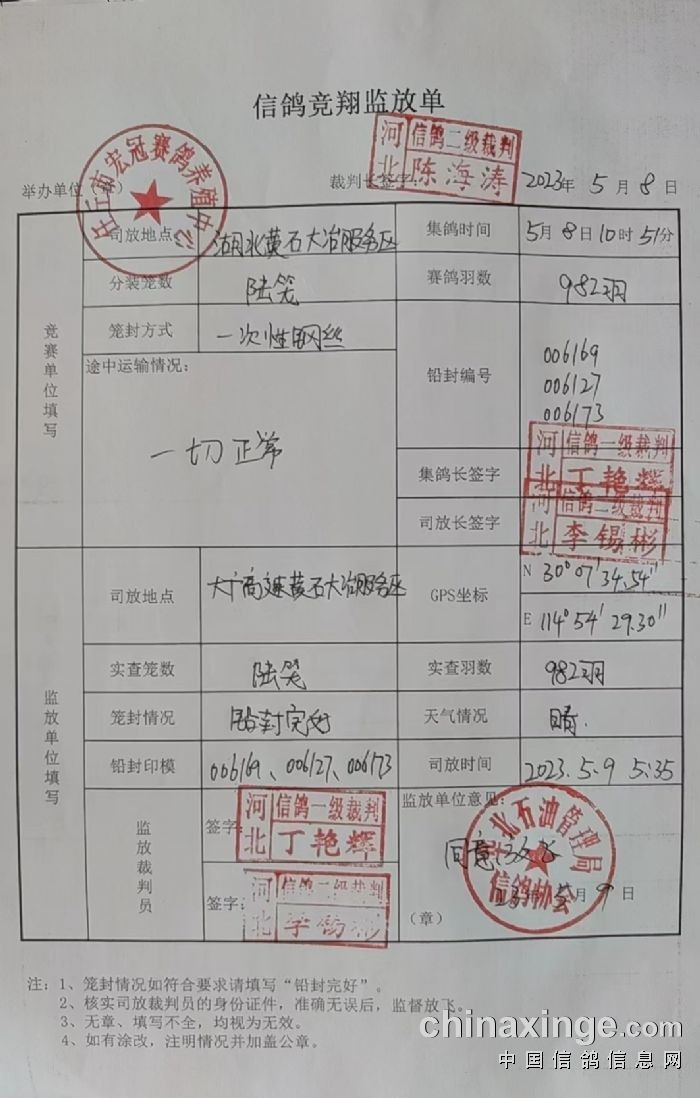 信鸽竞翔监放单
任丘市宏冠赛鸽养殖中心
举办单位（章）
裁判长签字：
河北 信鸽二级裁判 陈海涛
2023年 5月 8日
竞赛单位填写
司放地点 湖北黄石大冶服务区 集鸽时间 5月8日10时51分
分装笼数 陆笼 赛鸽羽数 982羽
笼封方式 一次性钢丝 铅封编号 006169
006127
006173
途中运输情况：
一切正常
集鸽长签字 河北 信鸽一级裁判 丁艳辉
司放长签字 河北 信鸽二级裁判 李锡彬
监放单位填写
司放地点 大广高速黄石大冶服务区 GPS坐标 N 30°07′34.54″
E 114°54′29.30″
实查笼数 陆笼 实查羽数 982羽
笼封情况 铅封完好 天气情况 晴.
铅封印模 006169、006127、006173 司放时间 2023.5.9 5:35
监放裁判员
签字： 河北 信鸽一级裁判 丁艳辉
签字： 河北 信鸽二级裁判 李锡彬
监放单位意见：
同意放飞
华北石油管理局
信鸽协会
年 5月 9日
（章）
注：1、笼封情况如符合要求请填写“铅封完好”。
2、核实司放裁判员的身份证件，准确无误后，监督放飞。
3、无章、填写不全，均视为无效。
4、如有涂改，注明情况并加盖公章。
chinaxinge.com
中国信鸽信息网